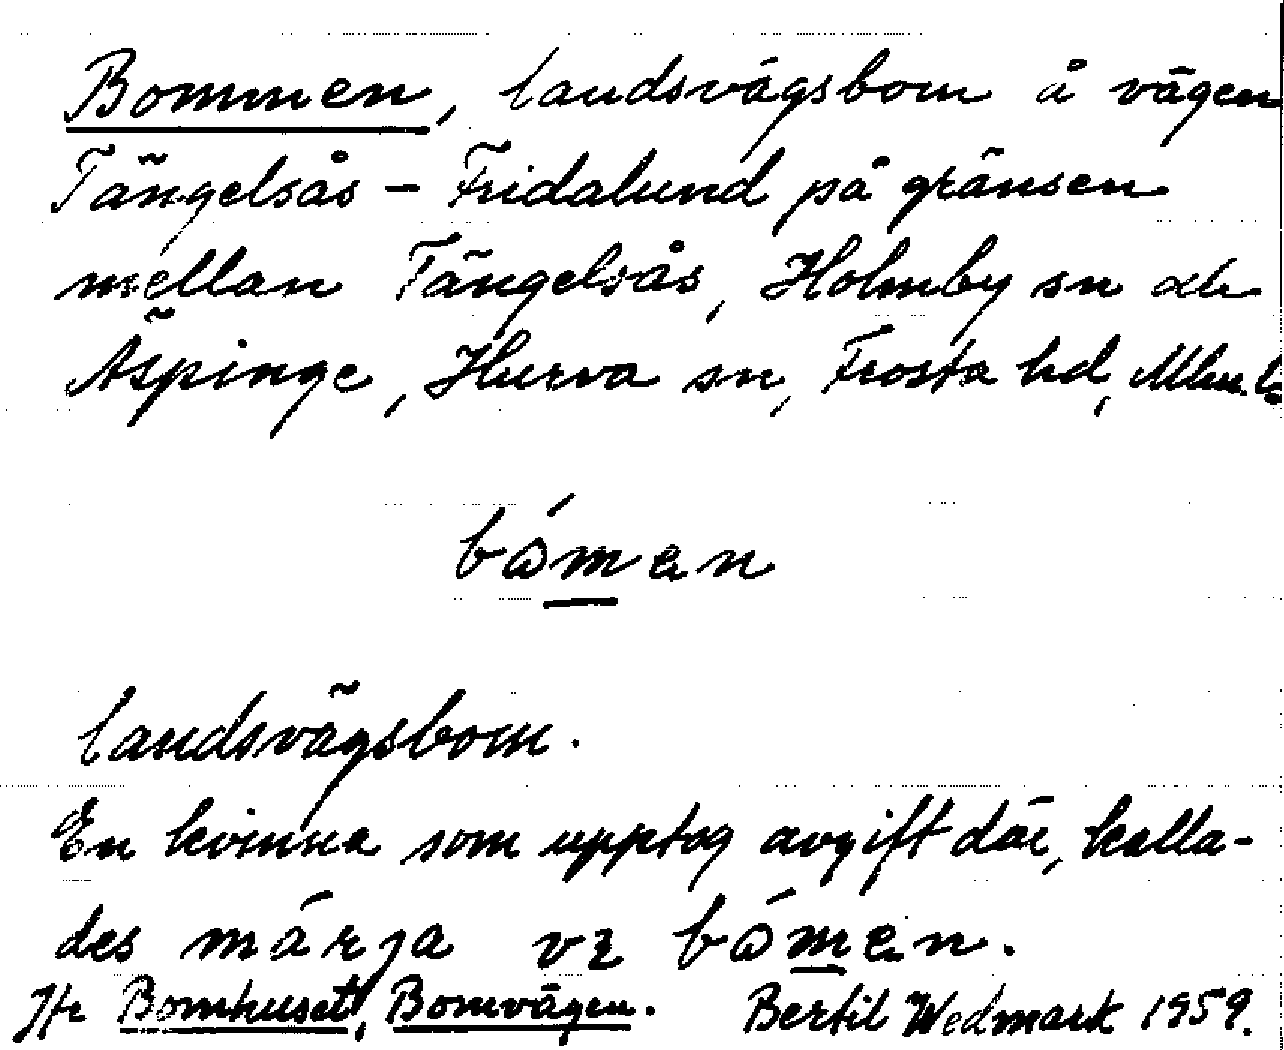 Bommen, landsvägsbom å vägen
Tängelsås – Fridalund på gränsen
mellan Tängelsås, Holmby sn och
Äspinge, Hurva sn, Frosta hd, Mlm. l.
bómen
landsvägsbom.
En kvinna som upptog avgift där, kalla-
des márja vɛ bómen.
Jfr Bomhuset, Bomvägen. Bertil Wedmark 1959.